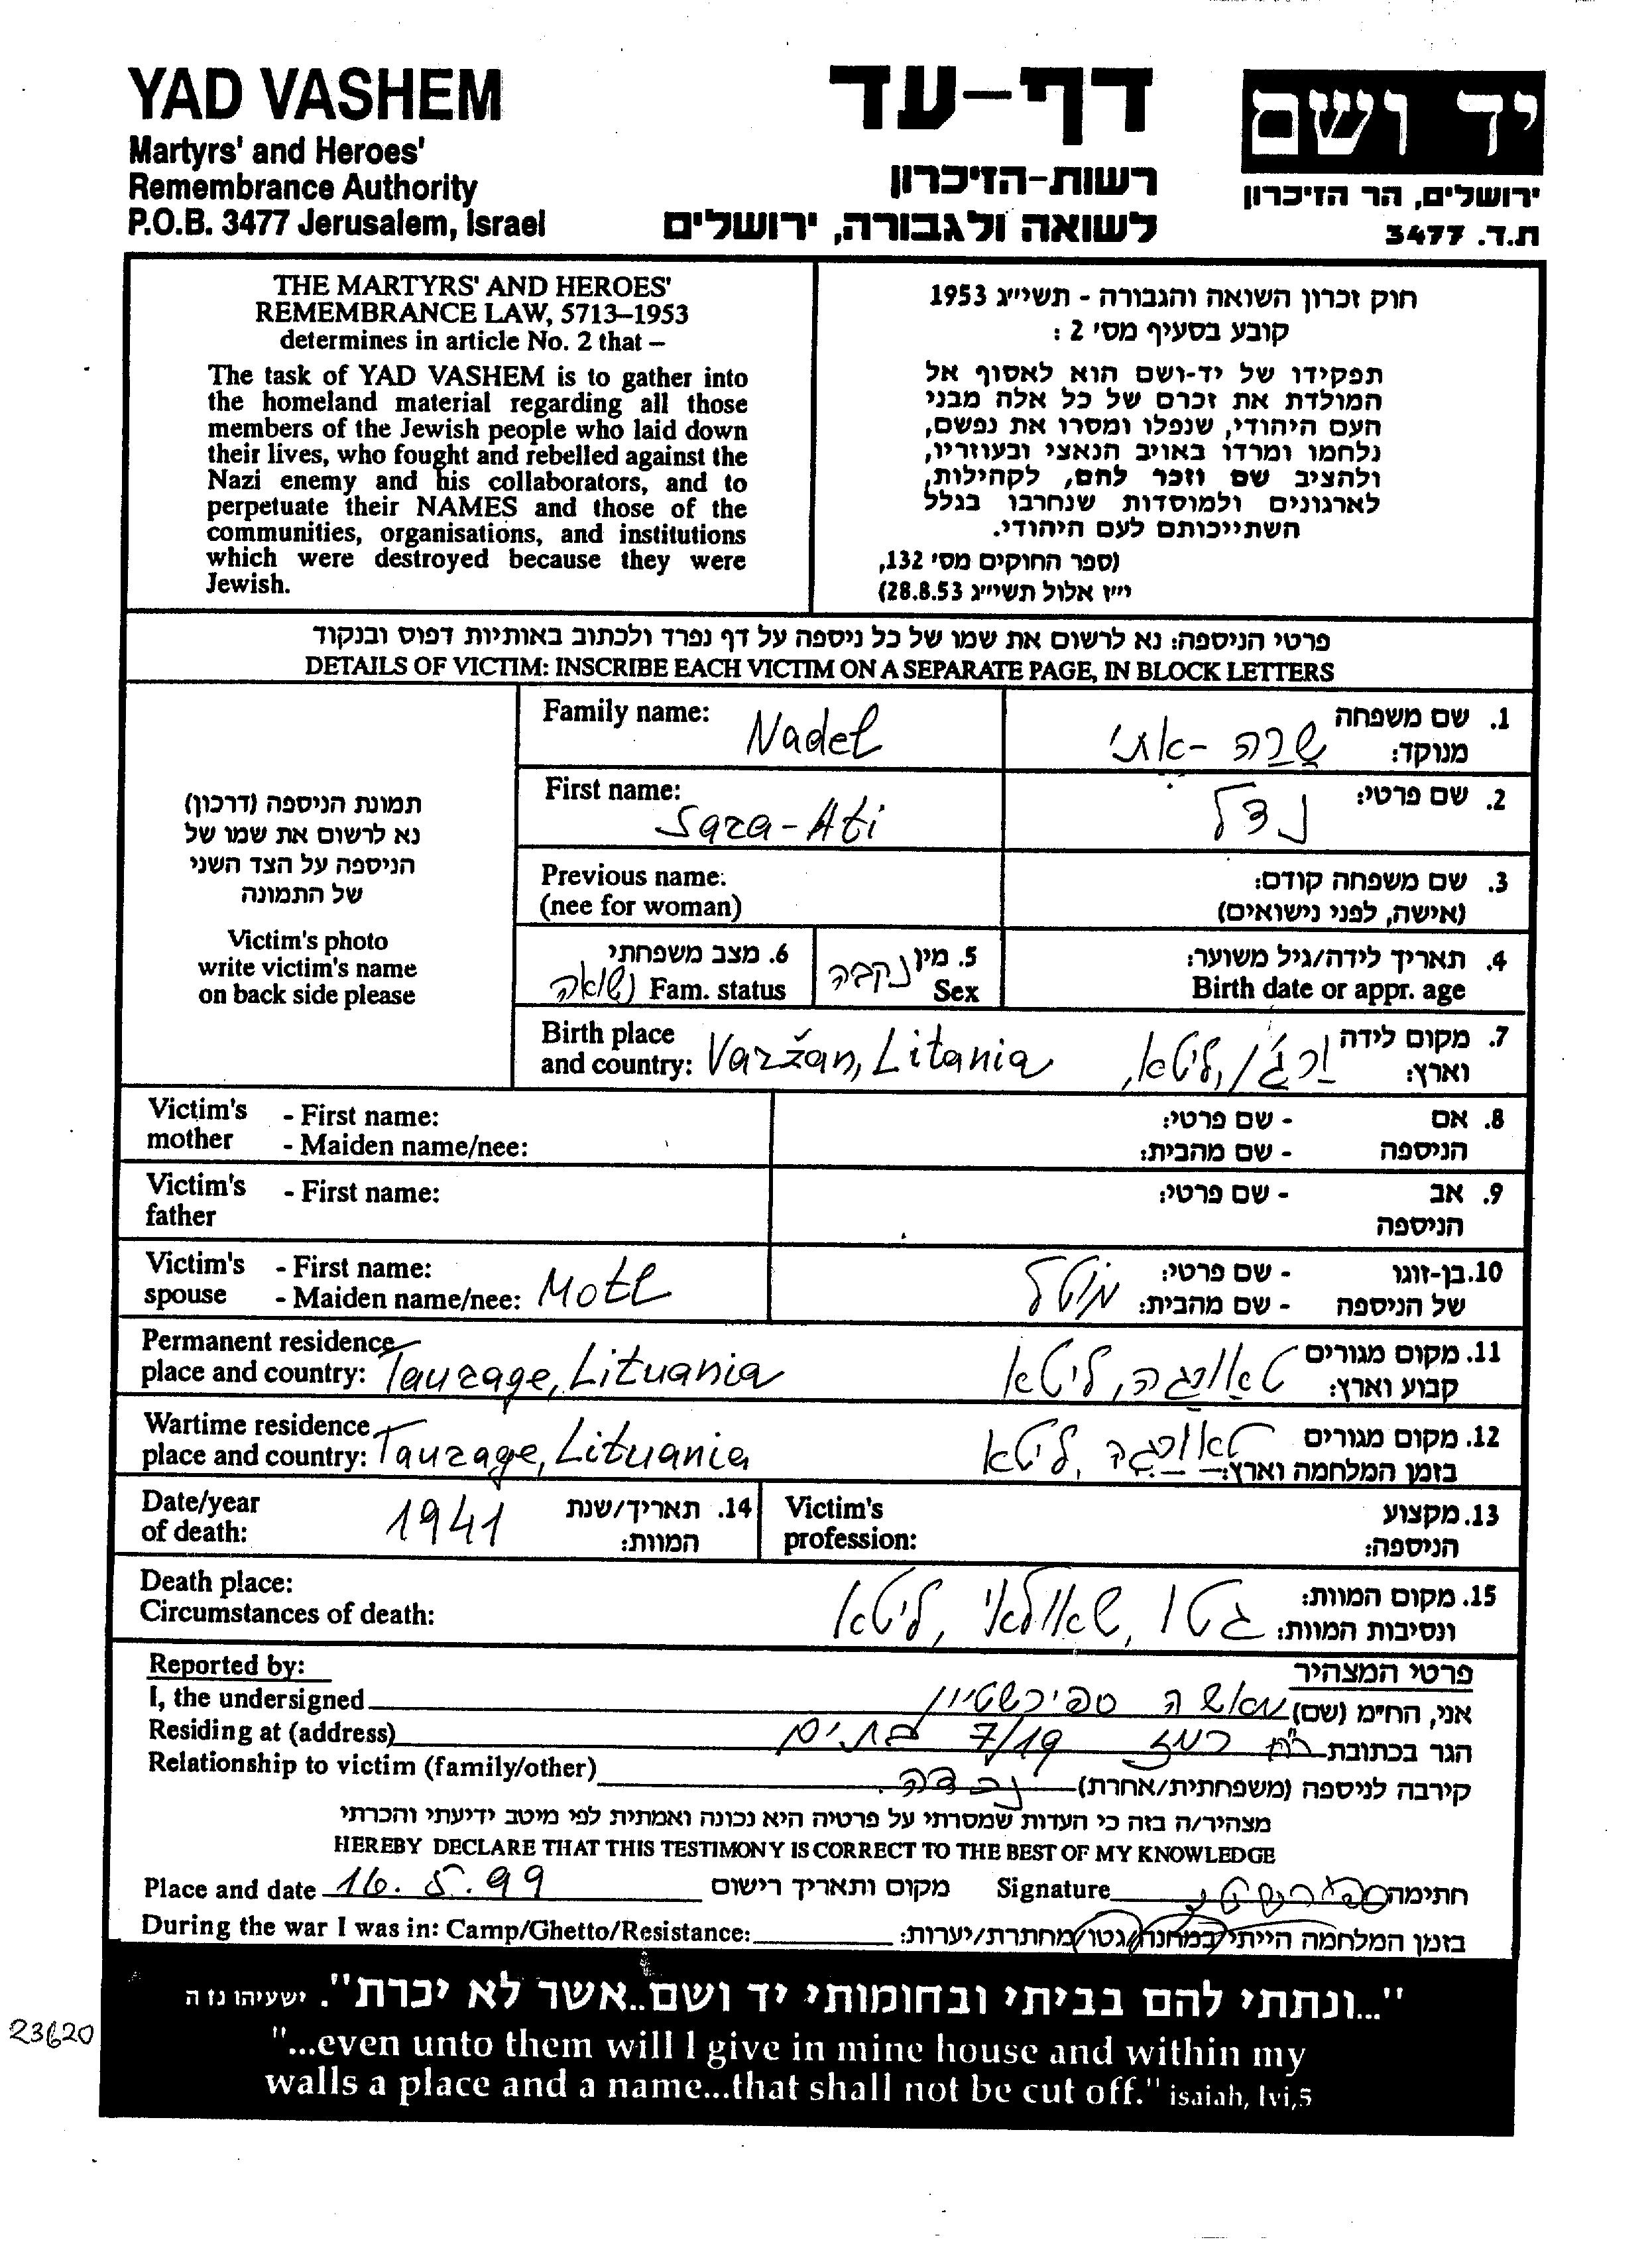 YAD VASHEM
Martyrs' and Heroes'
Remembrance Authority
P.O.B. 3477 Jerusalem, Israel
דף-עד
רשות-הזיכרון
לשואה ולגבורה, ירושלים
יד ושם
ירושלים, הר הזיכרון
ת.ד. 3477
THE MARTYRS' AND HEROES'
REMEMBRANCE LAW, 5713–1953
determines in article No. 2 that –
The task of YAD VASHEM is to gather into
the homeland material regarding all those
members of the Jewish people who laid down
their lives, who fought and rebelled against the
Nazi enemy and his collaborators, and to
perpetuate their NAMES and those of the
communities, organisations, and institutions
which were destroyed because they were
Jewish.
חוק זכרון השואה והגבורה - תשי״ג 1953
קובע בסעיף מס׳ 2 :
תפקידו של יד-ושם הוא לאסוף אל
המולדת את זכרם של כל אלה מבני
העם היהודי, שנפלו ומסרו את נפשם,
נלחמו ומרדו באויב הנאצי ובעוזריו,
ולהציב שם וזכר להם, לקהילות,
לארגונים ולמוסדות שנחרבו בגלל
השתייכותם לעם היהודי.
(ספר החוקים מס׳ 132,
י״ז אלול תשי״ג 28.8.53)
פרטי הניספה: נא לרשום את שמו של כל ניספה על דף נפרד ולכתוב באותיות דפוס ובנקוד
DETAILS OF VICTIM: INSCRIBE EACH VICTIM ON A SEPARATE PAGE, IN BLOCK LETTERS
תמונת הניספה (דרכון)
נא לרשום את שמו של
הניספה על הצד השני
של התמונה
Victim's photo
write victim's name
on back side please
Family name: Nadel
1. שם משפחה מנוקד: שרה-אתי
First name: Sara-Ati
2. שם פרטי: נדל
Previous name:
(nee for woman)
3. שם משפחה קודם:
(אישה, לפני נישואים)
6. מצב משפחתי
Fam. status נשואה
5. מין נקבה
Sex
4. תאריך לידה/גיל משוער:
Birth date or appr. age
Birth place
and country: Varžan, Litania
7. מקום לידה
וארץ: ורג'ן, ליטא,
Victim's mother - First name:
- Maiden name/nee:
8. אם הניספה - שם פרטי:
- שם מהבית:
Victim's father - First name:
9. אב הניספה - שם פרטי:
Victim's spouse - First name:
- Maiden name/nee: Motl
10. בן-זוגו של הניספה - שם פרטי:
- שם מהבית: מוטל
Permanent residence
place and country: Taurage, Lituania
11. מקום מגורים
קבוע וארץ: טאורגה, ליטא
Wartime residence
place and country: Taurage, Lituania
12. מקום מגורים
בזמן המלחמה וארץ: טאורגה, ליטא
Date/year
of death: 1941
14. תאריך/שנת
המוות:
Victim's
profession:
13. מקצוע
הניספה:
Death place:
Circumstances of death:
15. מקום המוות:
ונסיבות המוות: גטו, שאולאי, ליטא
Reported by:
פרטי המצהיר
I, the undersigned
אני, החי״מ (שם) מאשה ספירשטיין
Residing at (address)
הגר בכתובת 7/19 בת ים
Relationship to victim (family/other)
קירבה לניספה (משפחתית/אחרת) נכדה.
מצהיר/ה בזה כי העדות שמסרתי על פרטיה היא נכונה ואמתית לפי מיטב ידיעתי והכרתי
HEREBY DECLARE THAT THIS TESTIMONY IS CORRECT TO THE BEST OF MY KNOWLEDGE
Place and date 16.5.99 מקום ותאריך רישום
Signature חתימה
During the war I was in: Camp/Ghetto/Resistance:
בזמן המלחמה הייתי במחנה/גטו/מחתרת/יערות:
"...ונתתי להם בביתי ובחומותי יד ושם..אשר לא יכרת". ישעיהו נו ה
"...even unto them will I give in mine house and within my
walls a place and a name...that shall not be cut off." isaiah, lvi,5
23620